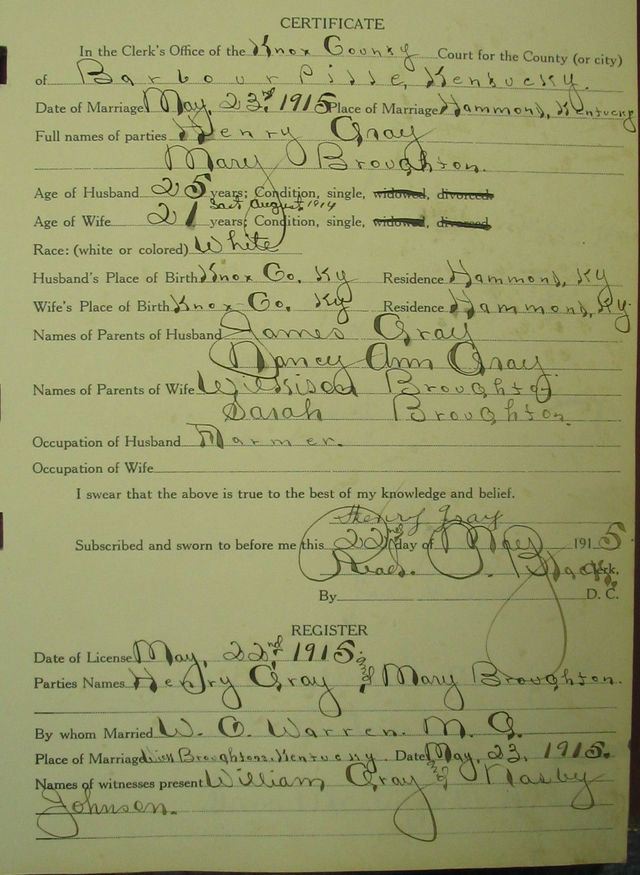 CERTIFICATE
In the Clerk's Office of the Knox County Court for the County (or city)
of Barbourville, Kentucky.
Date of Marriage May, 23rd, 1915 Place of Marriage Hammond, Kentucky
Full names of parties Henry Gray
Mary Broughton.
Age of Husband 25 years; Condition, single, widowed, divorced
last August 1914
Age of Wife 21 years; Condition, single, widowed, divorced
Race: (white or colored) White
Husband's Place of Birth Knox Co, Ky Residence Hammond, Ky
Wife's Place of Birth Knox Co. Ky Residence Hammond, Ky.
Names of Parents of Husband James Gray
Nancy Ann Gray.
Names of Parents of Wife Broughton
Sarah Broughton.
Occupation of Husband Farmer.
Occupation of Wife
I swear that the above is true to the best of my knowledge and belief.
Henry Gray
Subscribed and sworn to before me this 22nd day of May 1915
Read. Black. Clerk.
By D. C.
REGISTER
Date of License May, 22nd, 1915.
Parties Names Henry Gray and Mary Broughton.
By whom Married W. C. Warren. M. G.
Place of Marriage Broughtons, Kentucky. Dated May, 23, 1915.
Names of witnesses present William Gray and Nasby
Johnson.